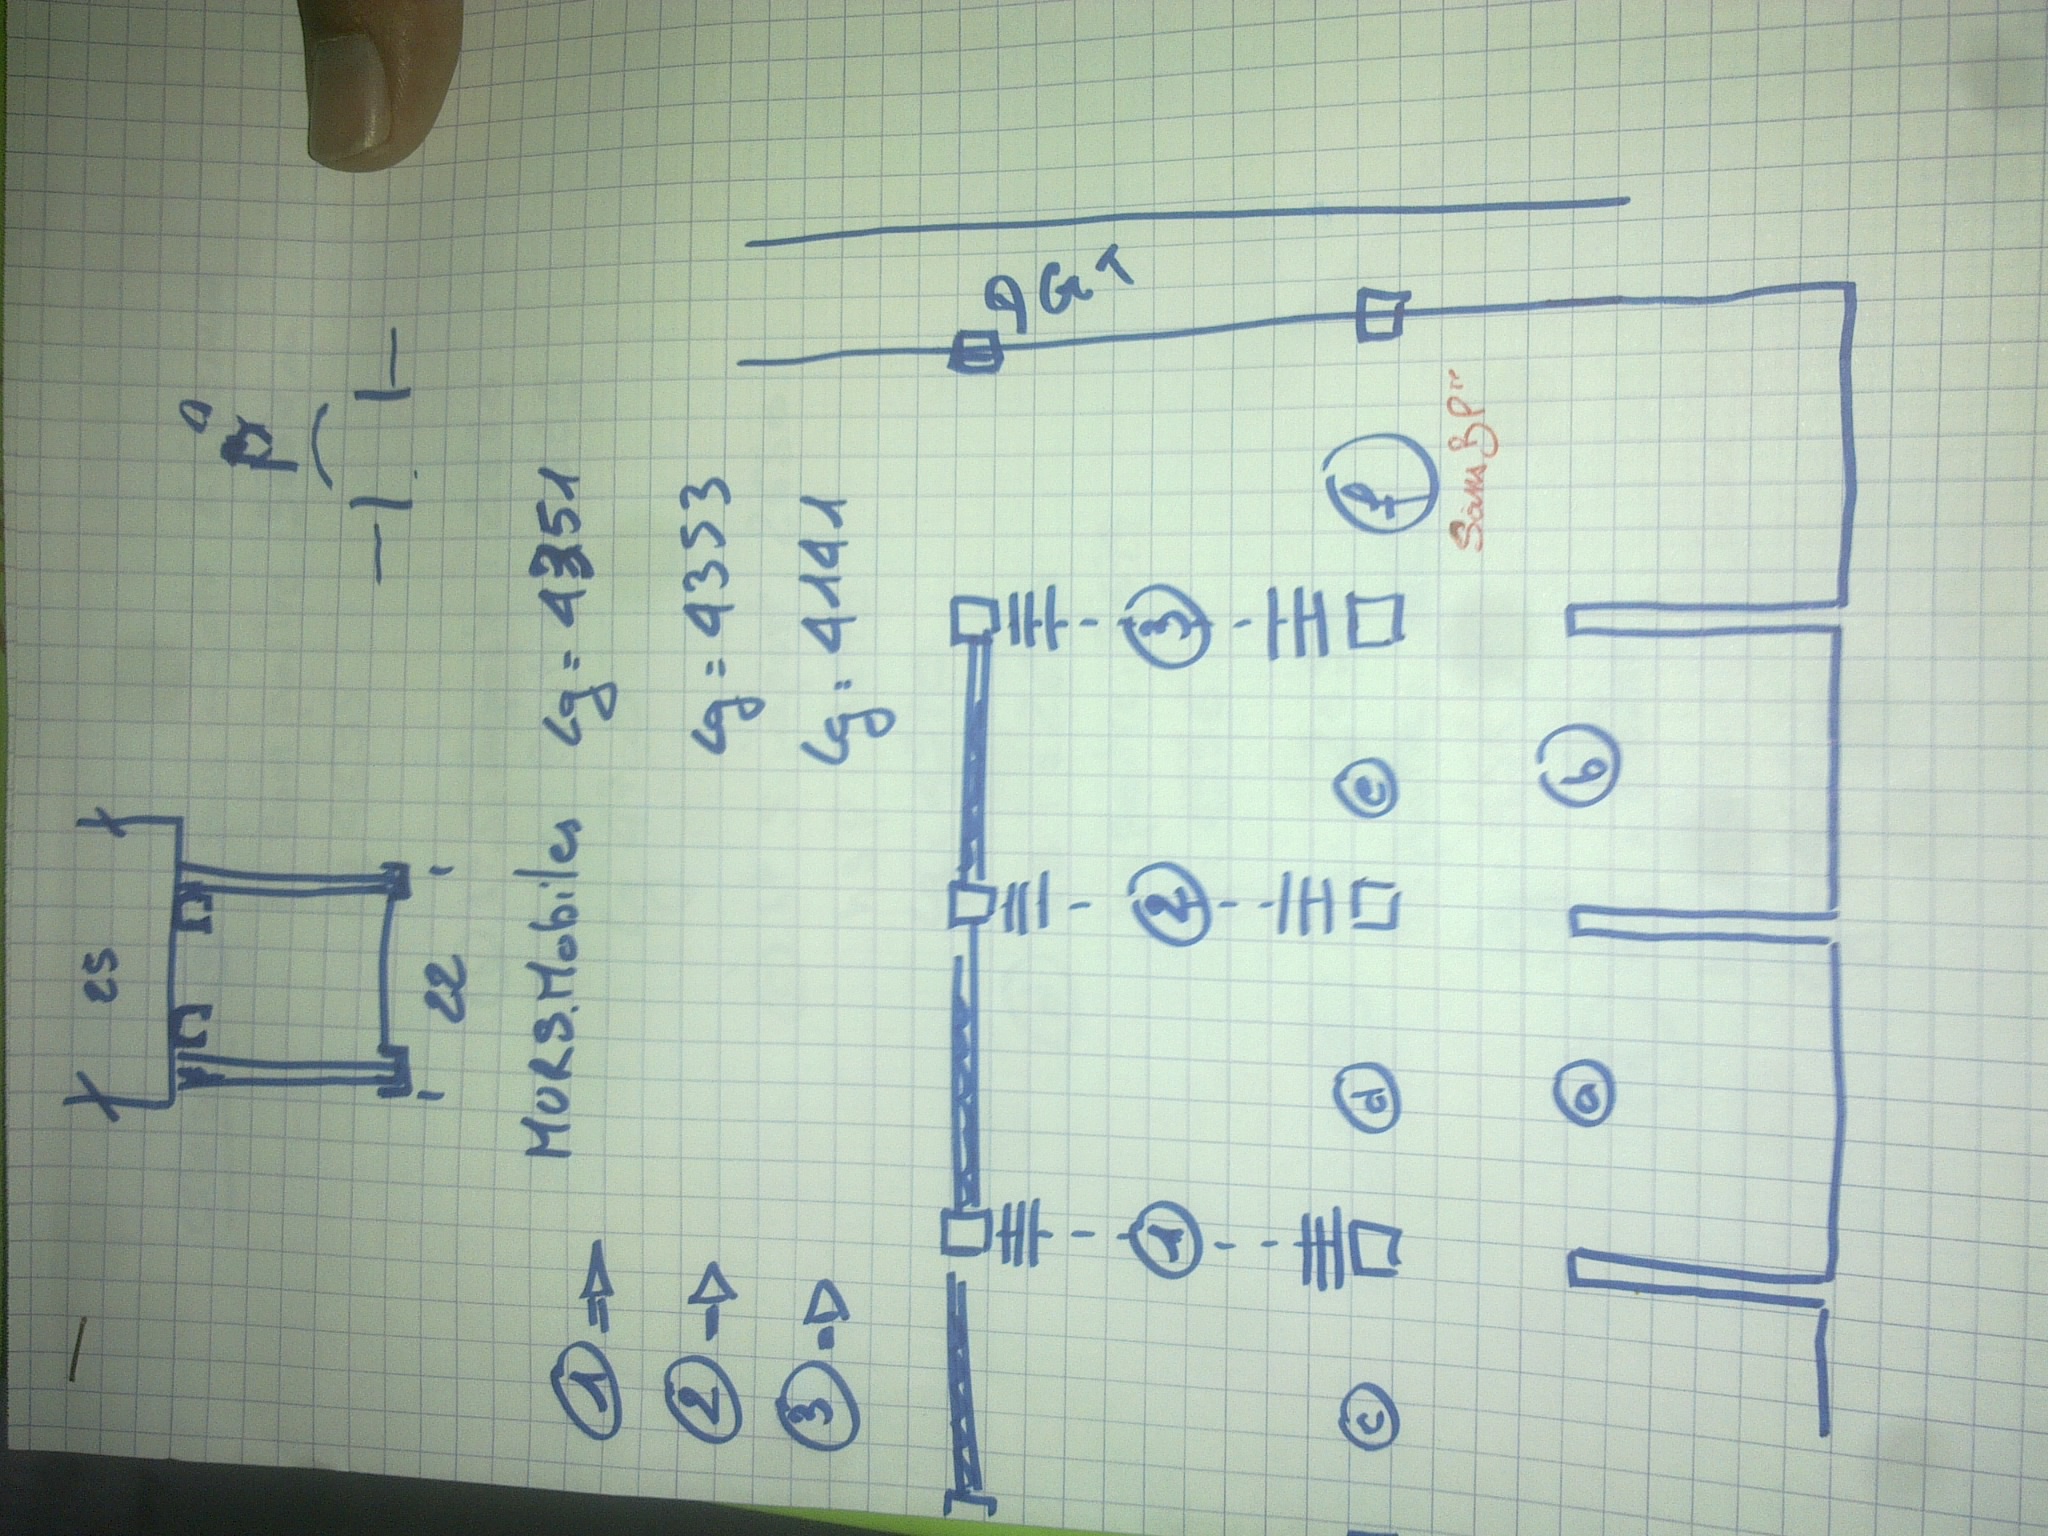 25
22
1 ⇒ MURS.Mobiles Lg = 4351
2 → Lg = 4353
3 → Lg = 4141
1 2 3
c d e f
Sans BP
a b